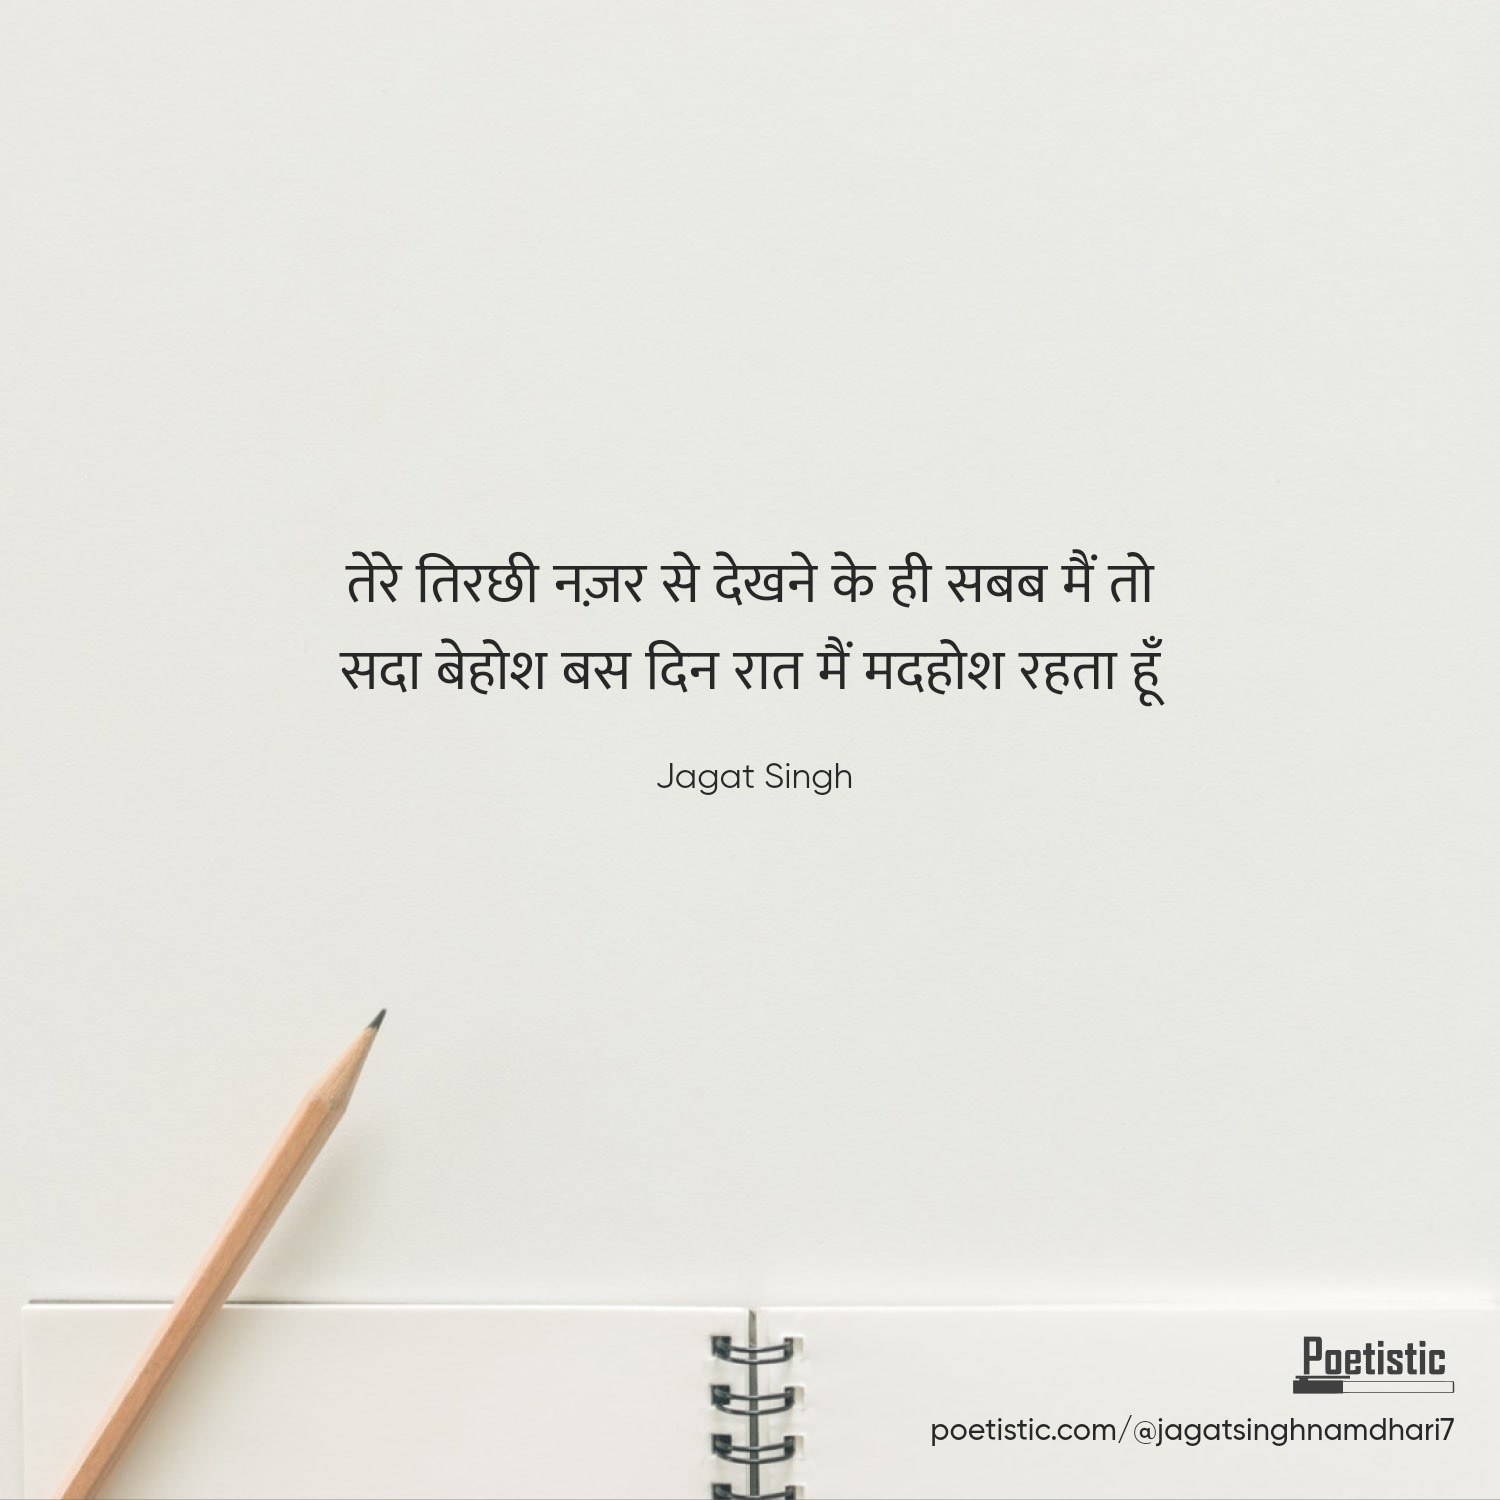 तेरे तिरछी नज़र से देखने के ही सबब मैं तो
सदा बेहोश बस दिन रात मैं मदहोश रहता हूँ
Jagat Singh
Poetistic
poetistic.com/@jagatsinghnamdhari7